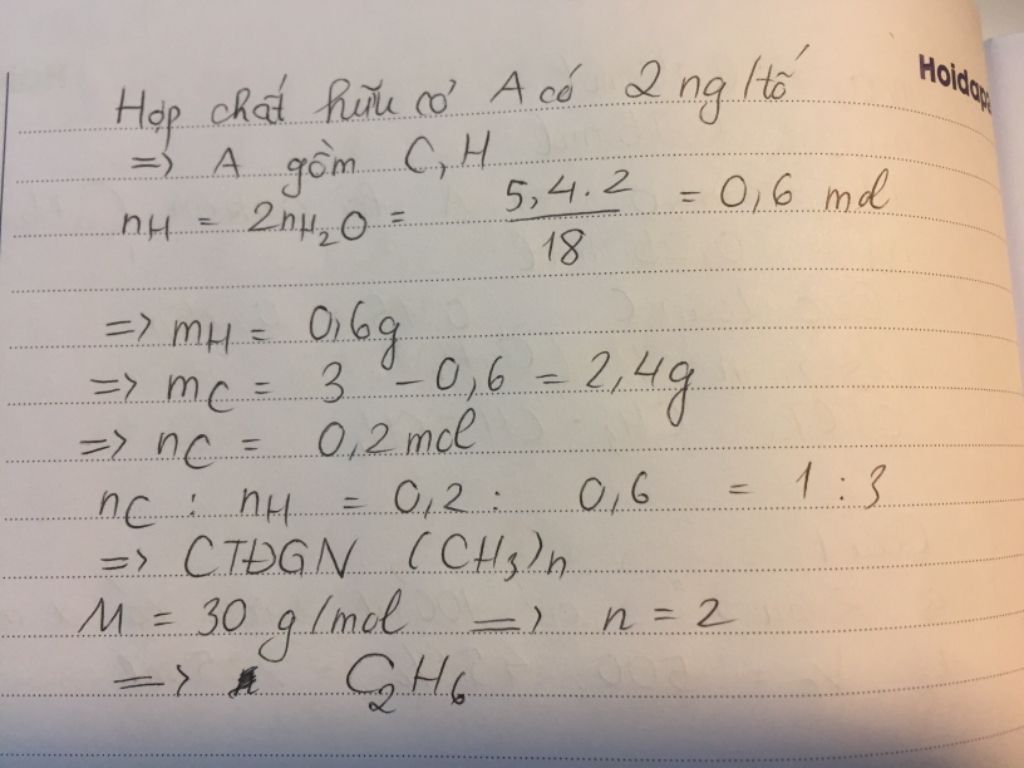 Hoidap
Hợp chất hữu cơ A có 2 ng/tố
=> A gồm C, H
nH = 2nH₂O = 5,4.2 / 18 = 0,6 mol
=> mH = 0,6g
=> mC = 3 - 0,6 = 2,4g
=> nC = 0,2 mol
nC : nH = 0,2 : 0,6 = 1 : 3
=> CTĐGN (CH₃)n
M = 30 g/mol => n = 2
=> C₂H₆